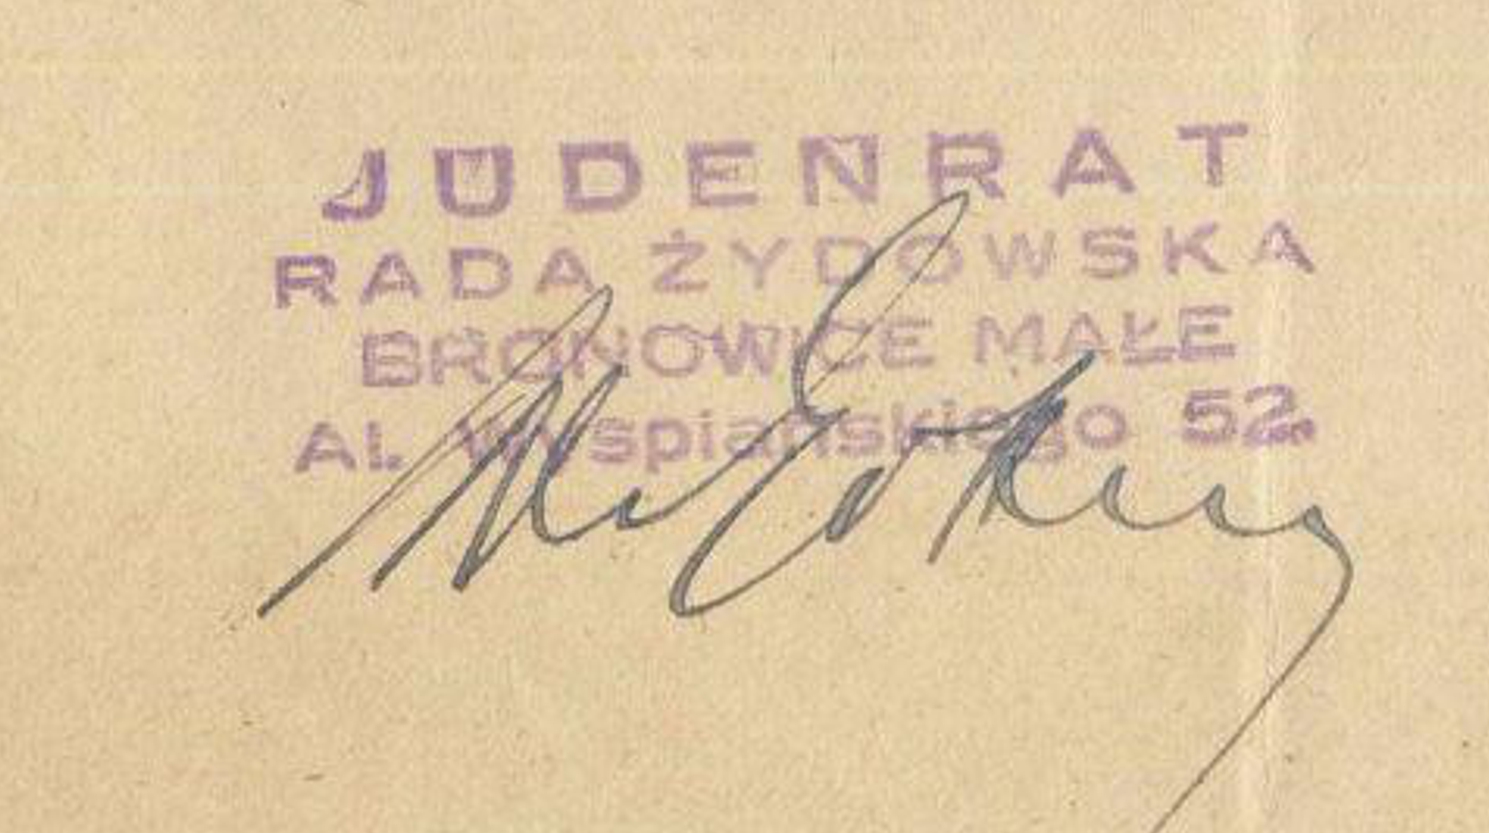 JUDENRAT
RADA ŻYDOWSKA
BRONOWICE MAŁE
Al. Wyspiańskiego 52.